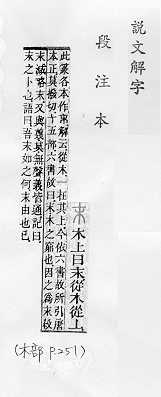 說文解字
段注本
末 木上曰末從木從上
此篆各本作末解云從木一在其上今依六書故所引唐
本正莫撥切十五部六書故曰末木之窮也因之為末殺
末減略末又與蔑莫無聲義皆通記曰
末之卜也語曰吾末如之何末由也已
(木部 P.251)